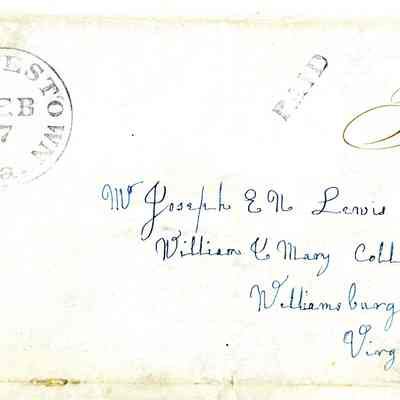 ESTOWN
FEB
7
a.
PAID
Mr Joseph E N Lewis
William & Mary Coll
Williamsburg
Virg